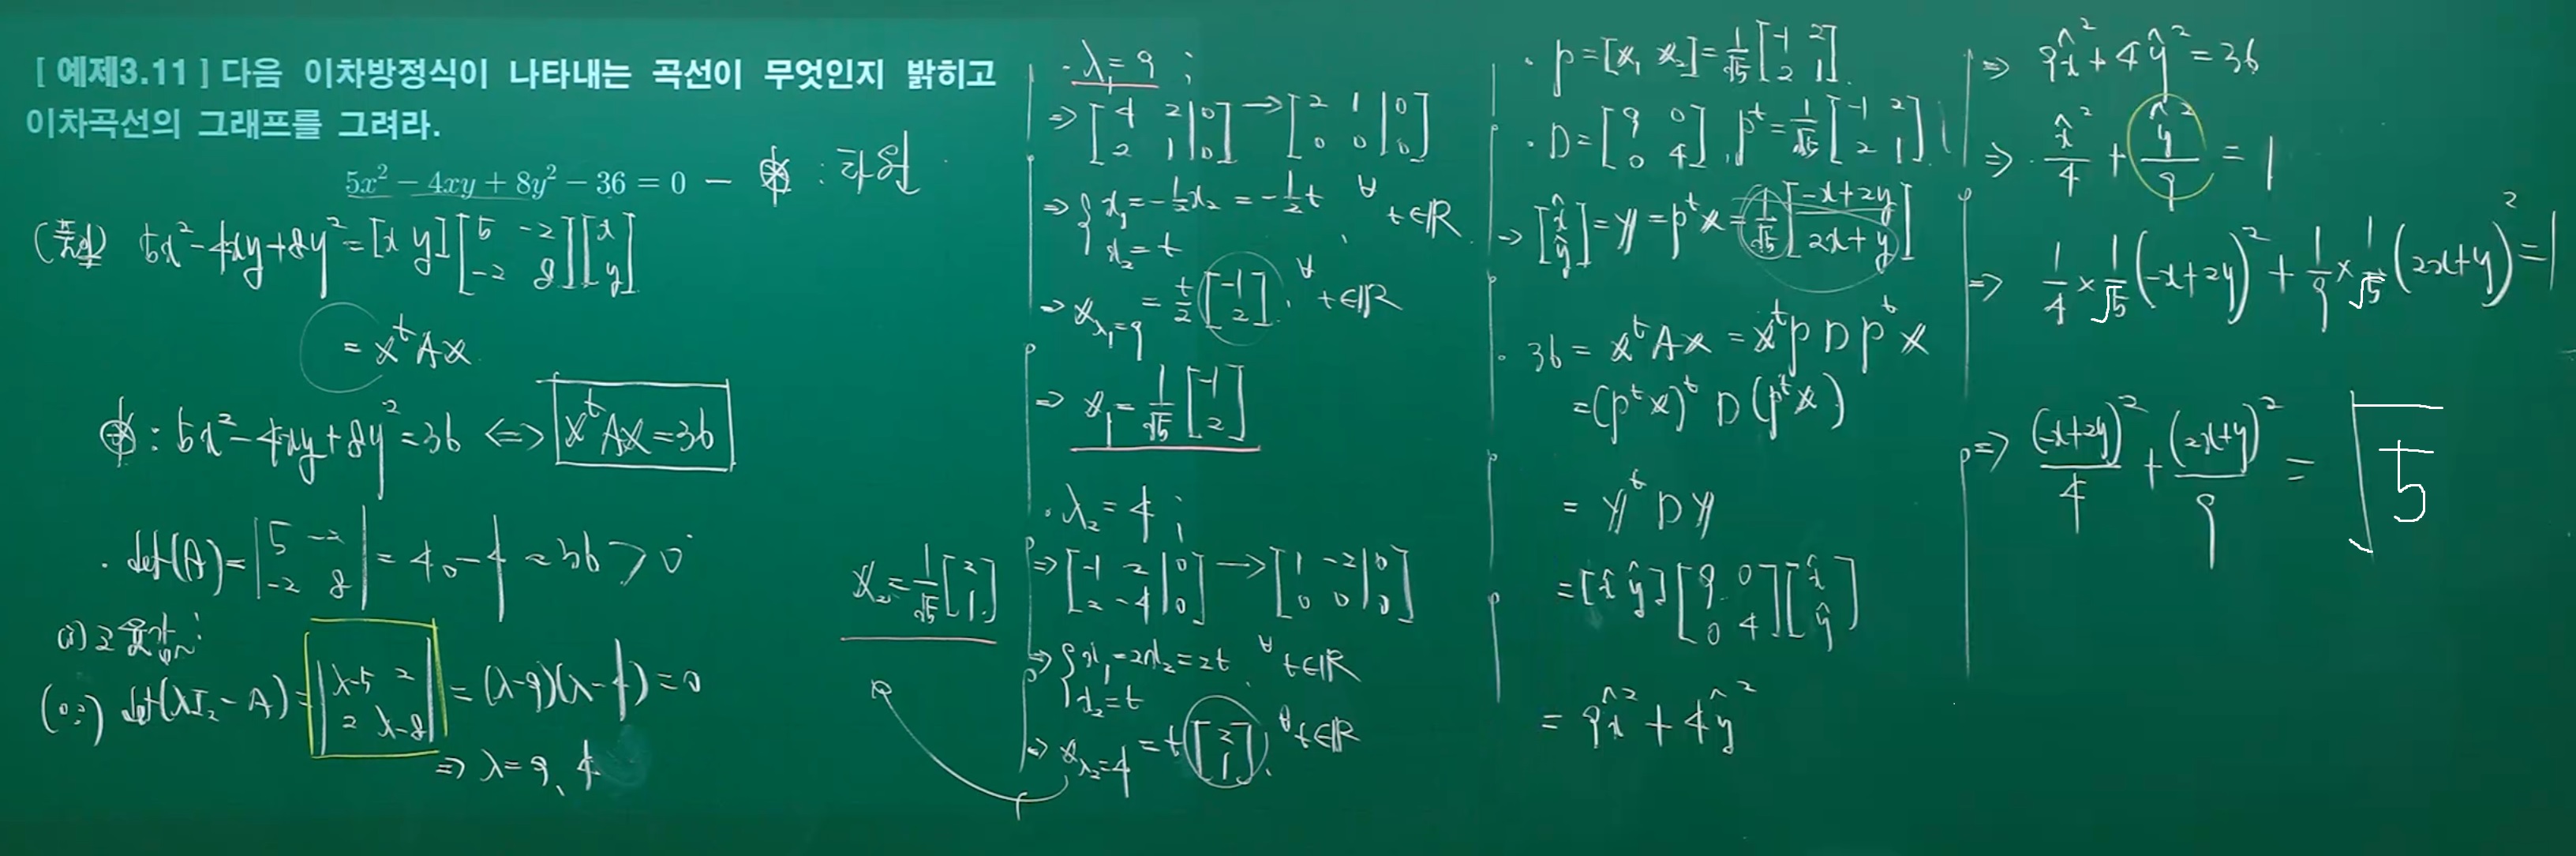 [ 예제3.11 ] 다음 이차방정식이 나타내는 곡선이 무엇인지 밝히고
이차곡선의 그래프를 그려라.
5x² − 4xy + 8y² − 36 = 0 — ⊛ : 타원
(풀이) 5x²-4xy+8y² = [x y][5 -2; -2 8][x; y]
= xᵗAx
⊛ : 5x²-4xy+8y²=36 ⟺ xᵗAx=36
· det(A)=|5 -2; -2 8| = 40-4 = 36 > 0
det(λI₂-A)=|λ-5 2; 2 λ-8| = (λ-9)(λ-4)=0
⇒ λ=9, 4
x₂=1/√5 [2; 1]
· λ₁=9 ;
⇒ [4 2|0; 2 1|0] → [2 1|0; 0 0|0]
⇒ { x₁=-½x₂ = -½t
x₂=t , ∀t∈ℝ
⇒ x_λ₁=9 = t/2 [-1; 2], ∀t∈ℝ
⇒ x₁=1/√5 [-1; 2]
· λ₂=4 ;
⇒ [-1 2|0; 2 -4|0] → [1 -2|0; 0 0|0]
⇒ { x₁=2x₂=2t
x₂=t , ∀t∈ℝ
⇒ x_λ₂=4 = t[2; 1], ∀t∈ℝ
· P=[x₁ x₂]=1/√5 [-1 2; 2 1]
· D=[9 0; 0 4], Pᵗ=1/√5 [-1 2; 2 1]
⇒ [x̂; ŷ]=y=Pᵗx=1/√5 [-x+2y; 2x+y]
· 36 = xᵗAx = xᵗPDPᵗx
=(Pᵗx)ᵗ D (Pᵗx)
= yᵗDy
=[x̂ ŷ][9 0; 0 4][x̂; ŷ]
= 9x̂²+4ŷ²
⇒ 9x̂²+4ŷ²=36
⇒ x̂²/4 + ŷ²/9 = 1
⇒ 1/4 × 1/√5 (-x+2y)² + 1/9 × 1/√5 (2x+y)² = 1
⇒ (-x+2y)²/4 + (2x+y)²/9 = √5